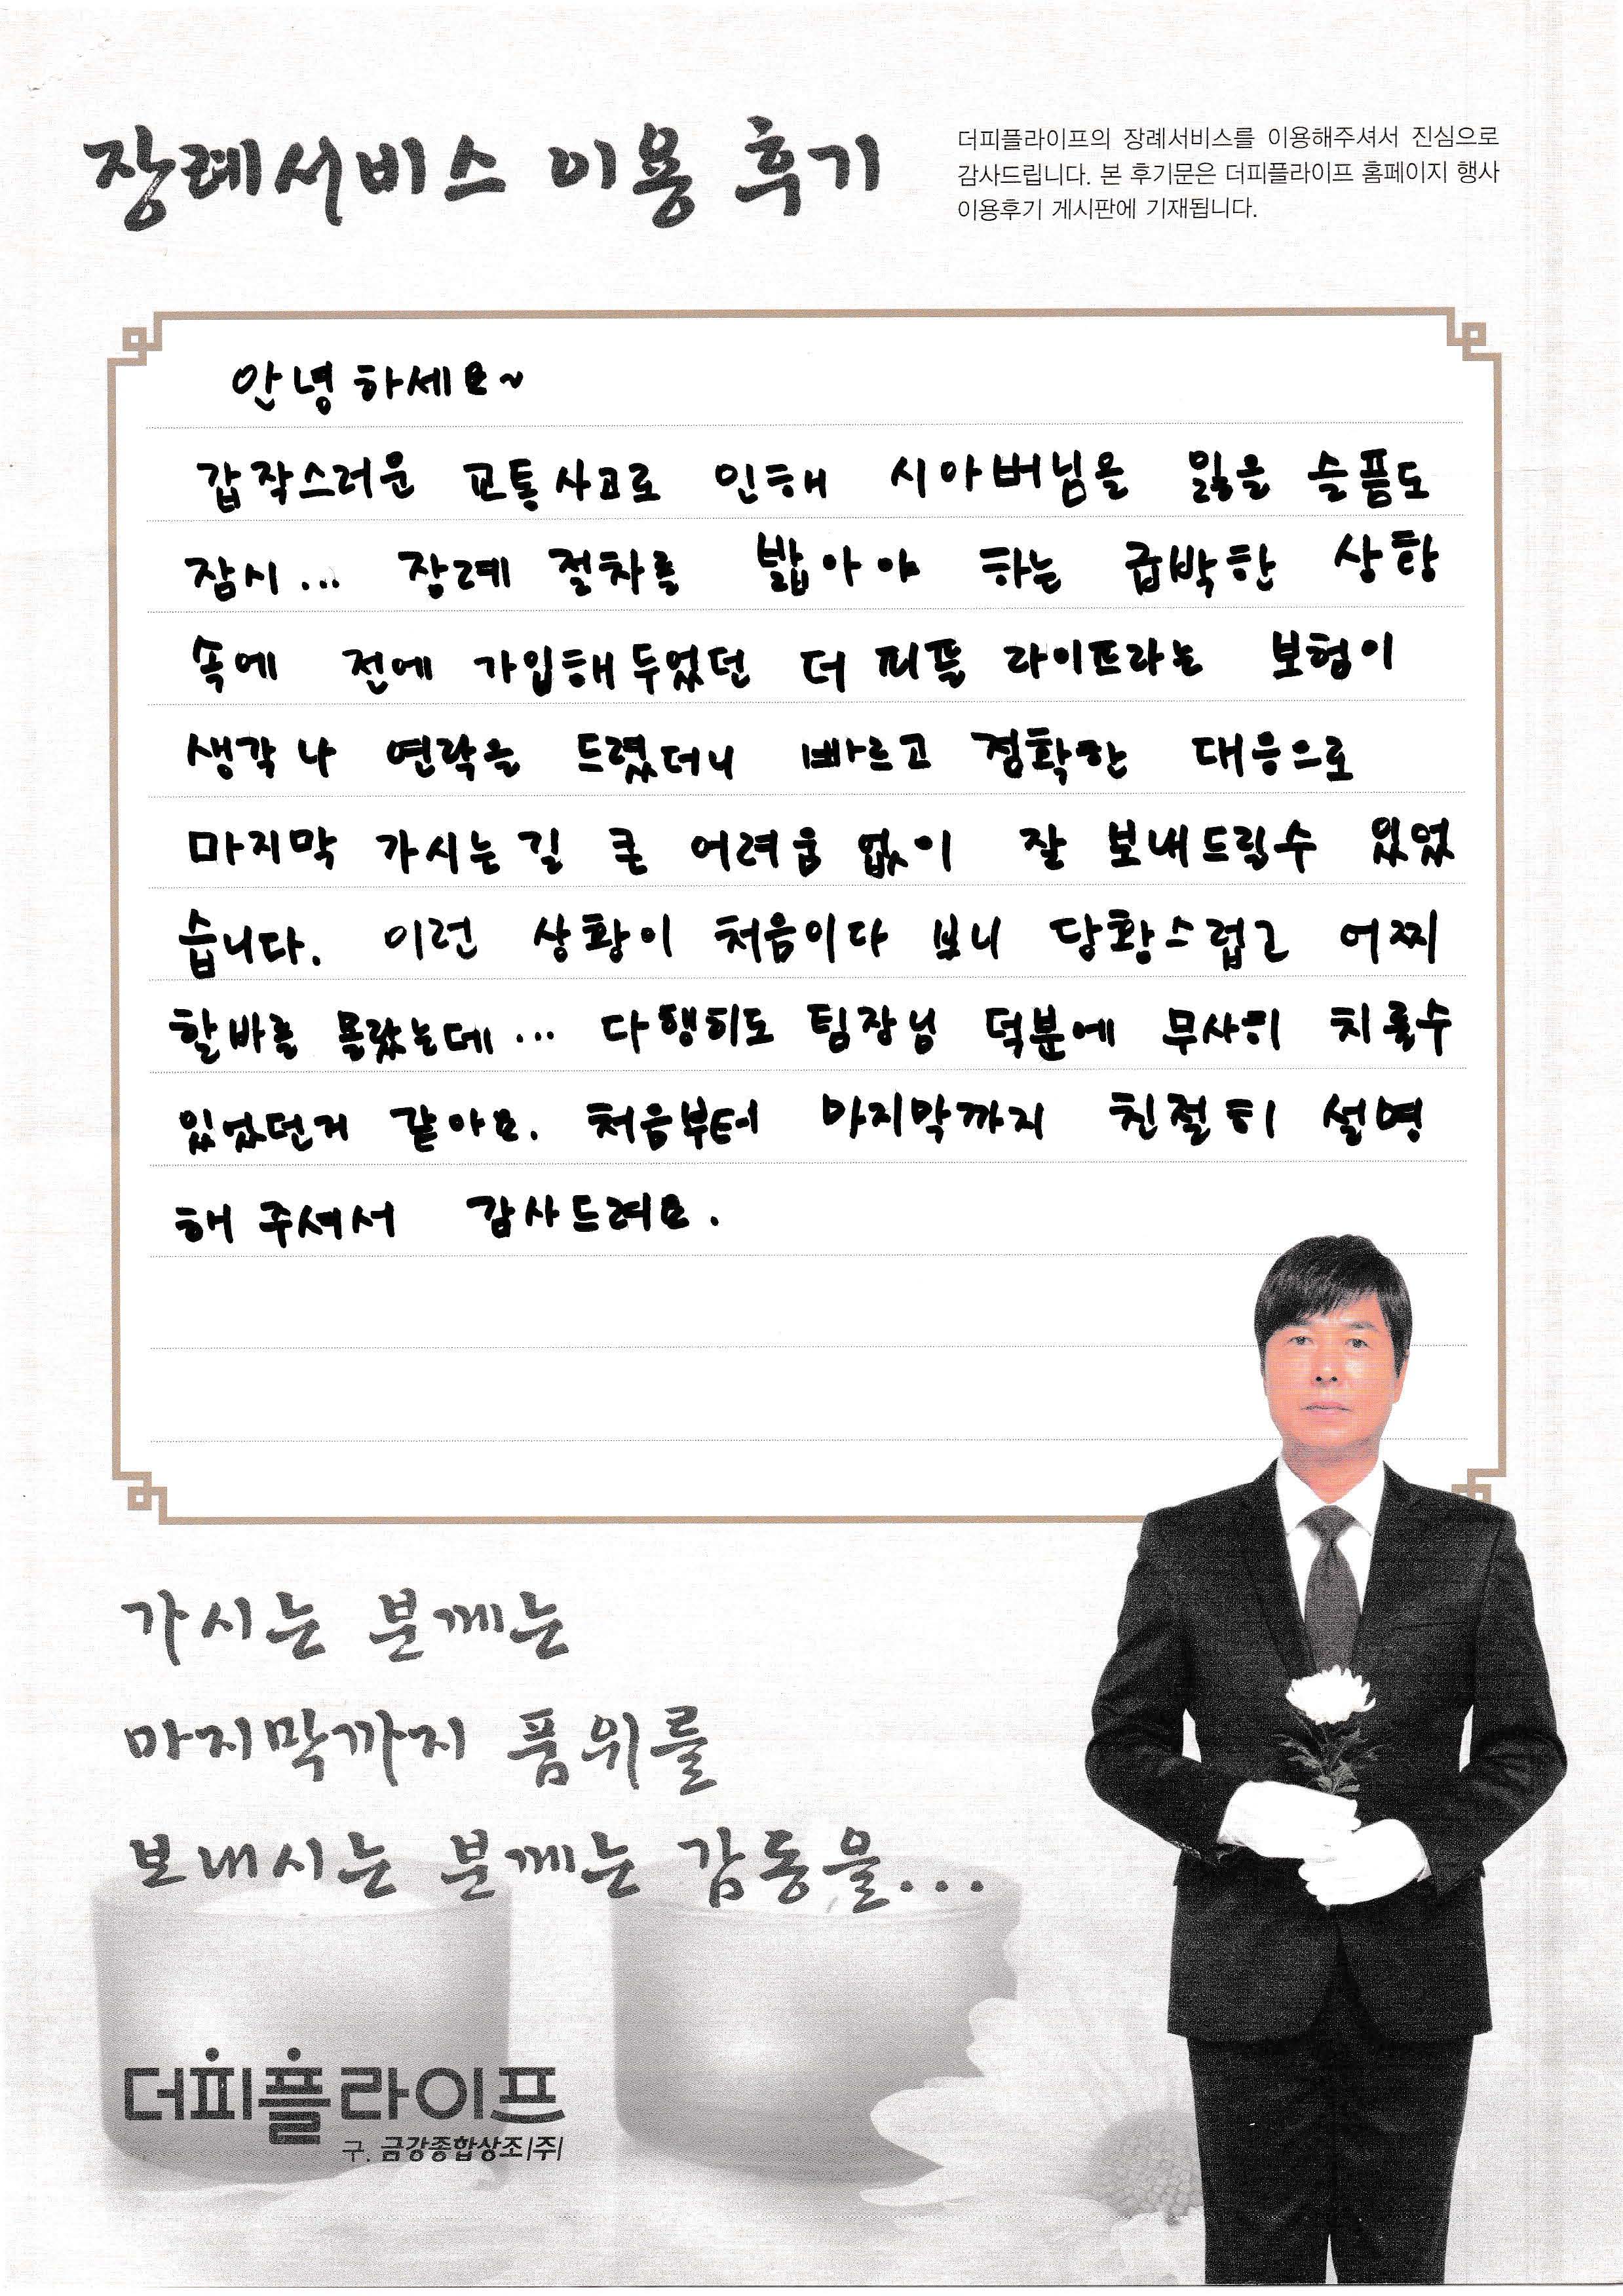 장례서비스 이용 후기
더피플라이프의 장례서비스를 이용해주셔서 진심으로
감사드립니다. 본 후기문은 더피플라이프 홈페이지 행사
이용후기 게시판에 기재됩니다.
안녕하세요~
갑작스러운 교통사고로 인해 시아버님을 잃을 슬픔도
잠시... 장례 절차를 밟아야 하는 급박한 상황
속에 전에 가입해두었던 더 피플 라이프라는 보험이
생각나 연락을 드렸더니 빠르고 정확한 대응으로
마지막 가시는길 큰 어려움 없이 잘 보내드릴수 있었
습니다. 이런 상황이 처음이다 보니 당황스럽고 어찌
할바를 몰랐는데... 다행히도 팀장님 덕분에 무사히 치룰수
있었던거 같아요. 처음부터 마지막까지 친절히 설명
해 주셔서 감사드려요.
가시는 분께는
마지막까지 품위를
보내시는 분께는 감동을...
더피플라이프
구. 금강종합상조|주|